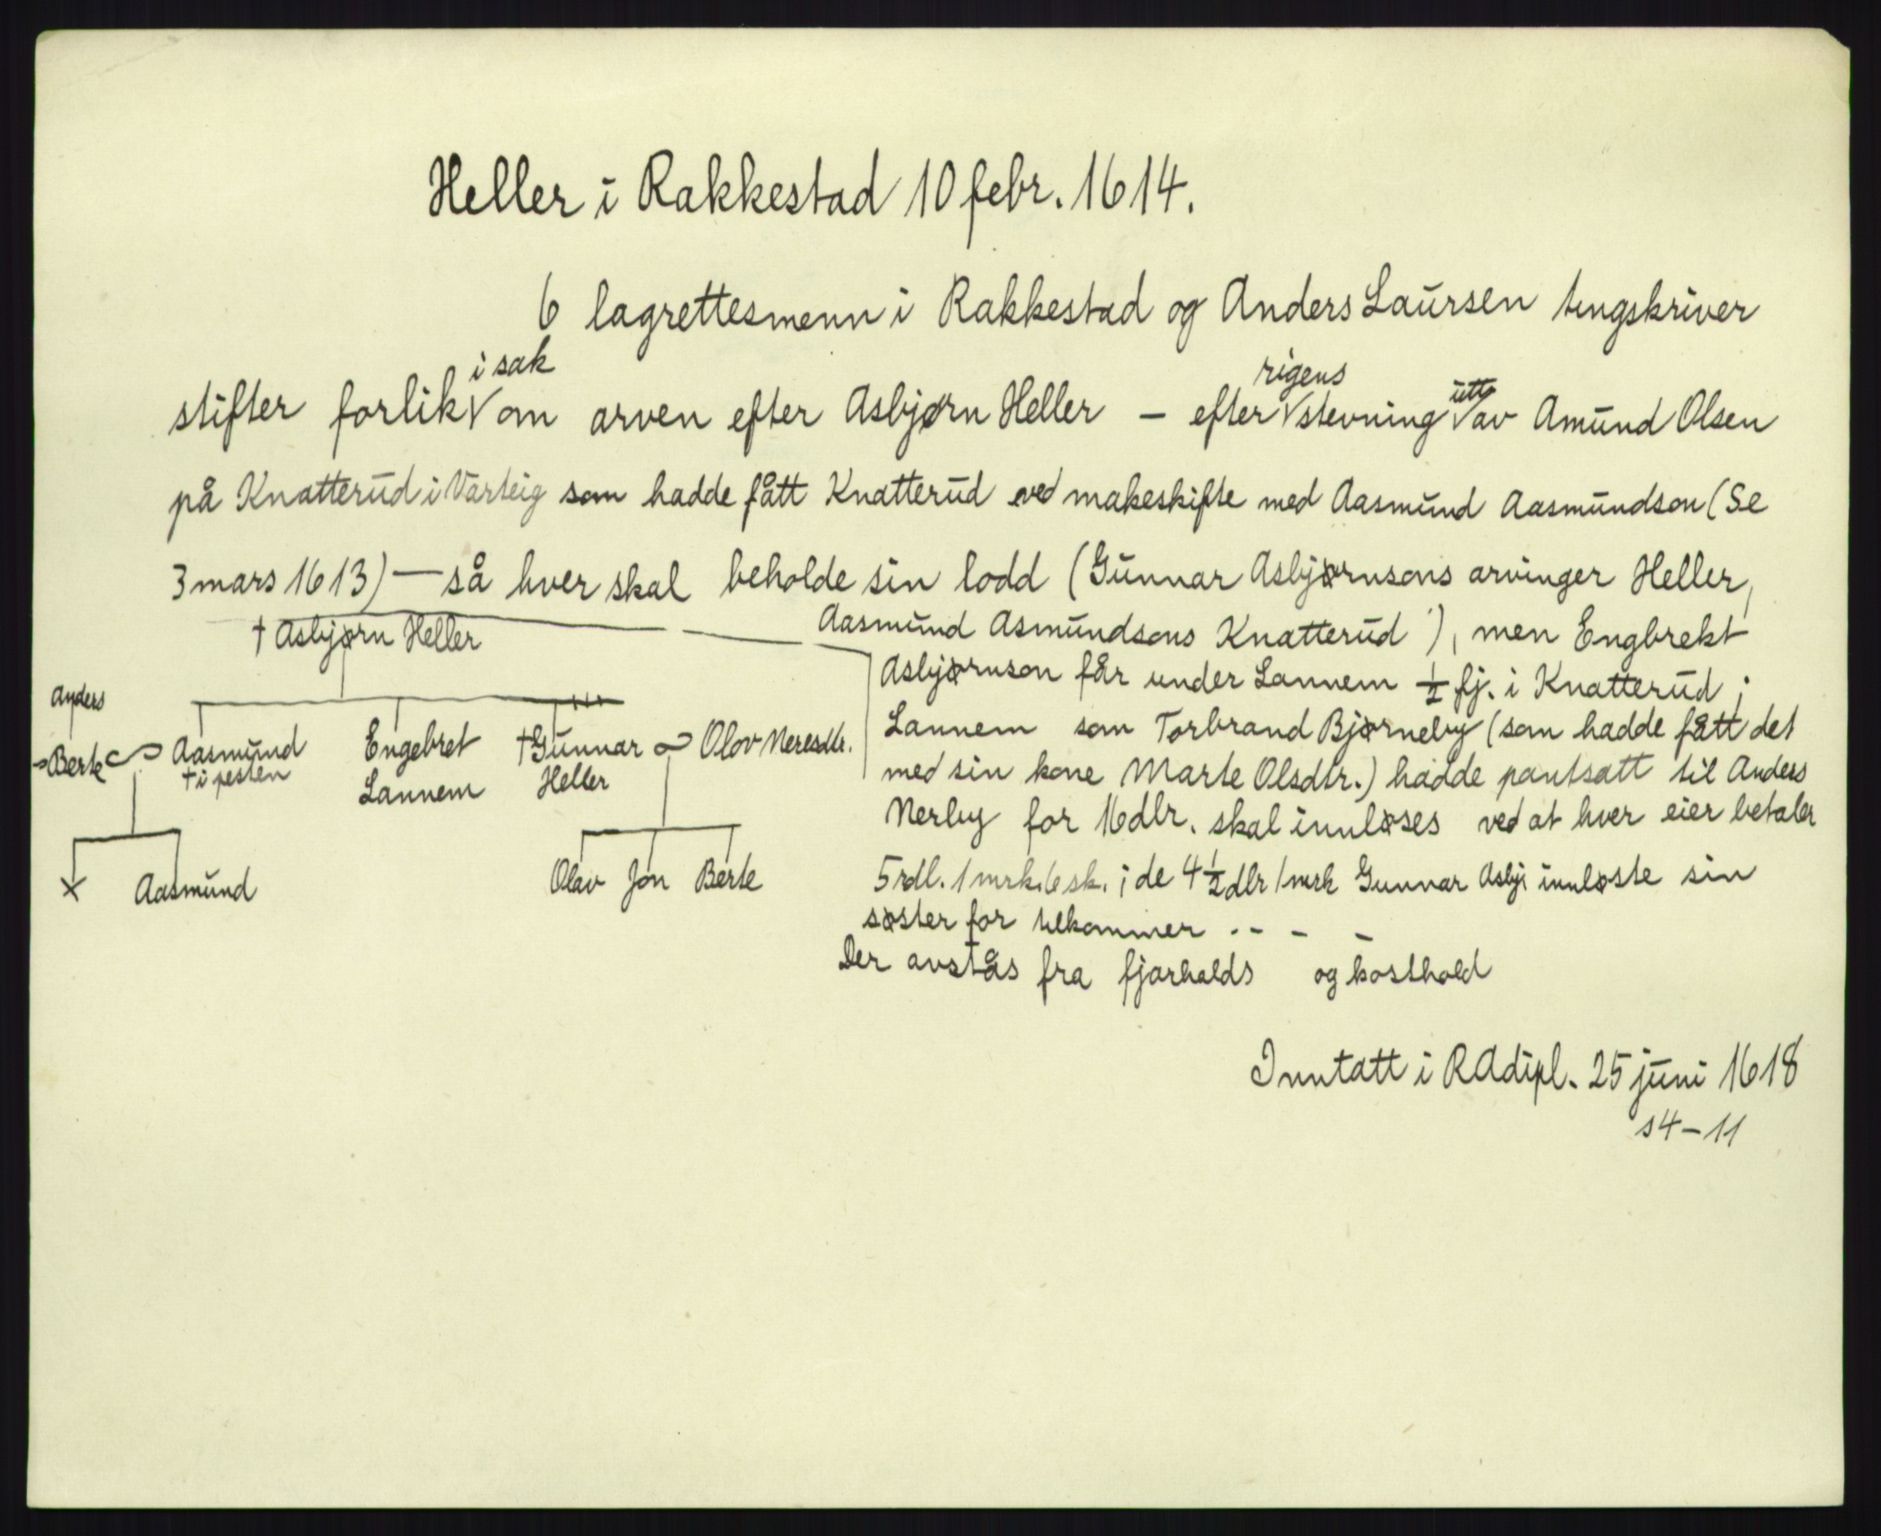 Heller i Rakkestad 10 febr. 1614.
6 lagrettesmenn i Rakkestad og Anders Laursen tingskriver
i sak rigens utt
stifter forlik om arven efter Asbjørn Heller – efter stevning av Amund Olsen
på Knatterud i Varteig som hadde fått Knatterud ved makeskifte med Aasmund Aasmundson (Se
3 mars 1613) — så hver skal beholde sin lodd (Gunnar Asbjørnsons arvinger Heller,
Aasmund Asmundsons Knatterud), men Engbrekt
Asbjørnson får under Lannem ½ fj. i Knatterud;
Lannem som Torbrand Bjørneby (som hadde fått det
med sin kone Marte Olsdtr.) hadde pantsatt til Anders
Nerby for 16 dlr. skal innløses ved at hver eier betaler
5 rdl. 1 mrk. 6 sk. ; de 4½ dlr 1 mrk Gunnar Asbj. innløste sin
søster for tilkommer - - - -
Der avstås fra fjorhalds og kosthold
† Asbjørn Heller
Anders
Berte Aasmund Engebret † Gunnar Olov Neresdtr.
† i pesten Lannem Heller
x Aasmund Olav Jon Berte
Inntatt i RAdipl. 25 juni 1618
s4–11